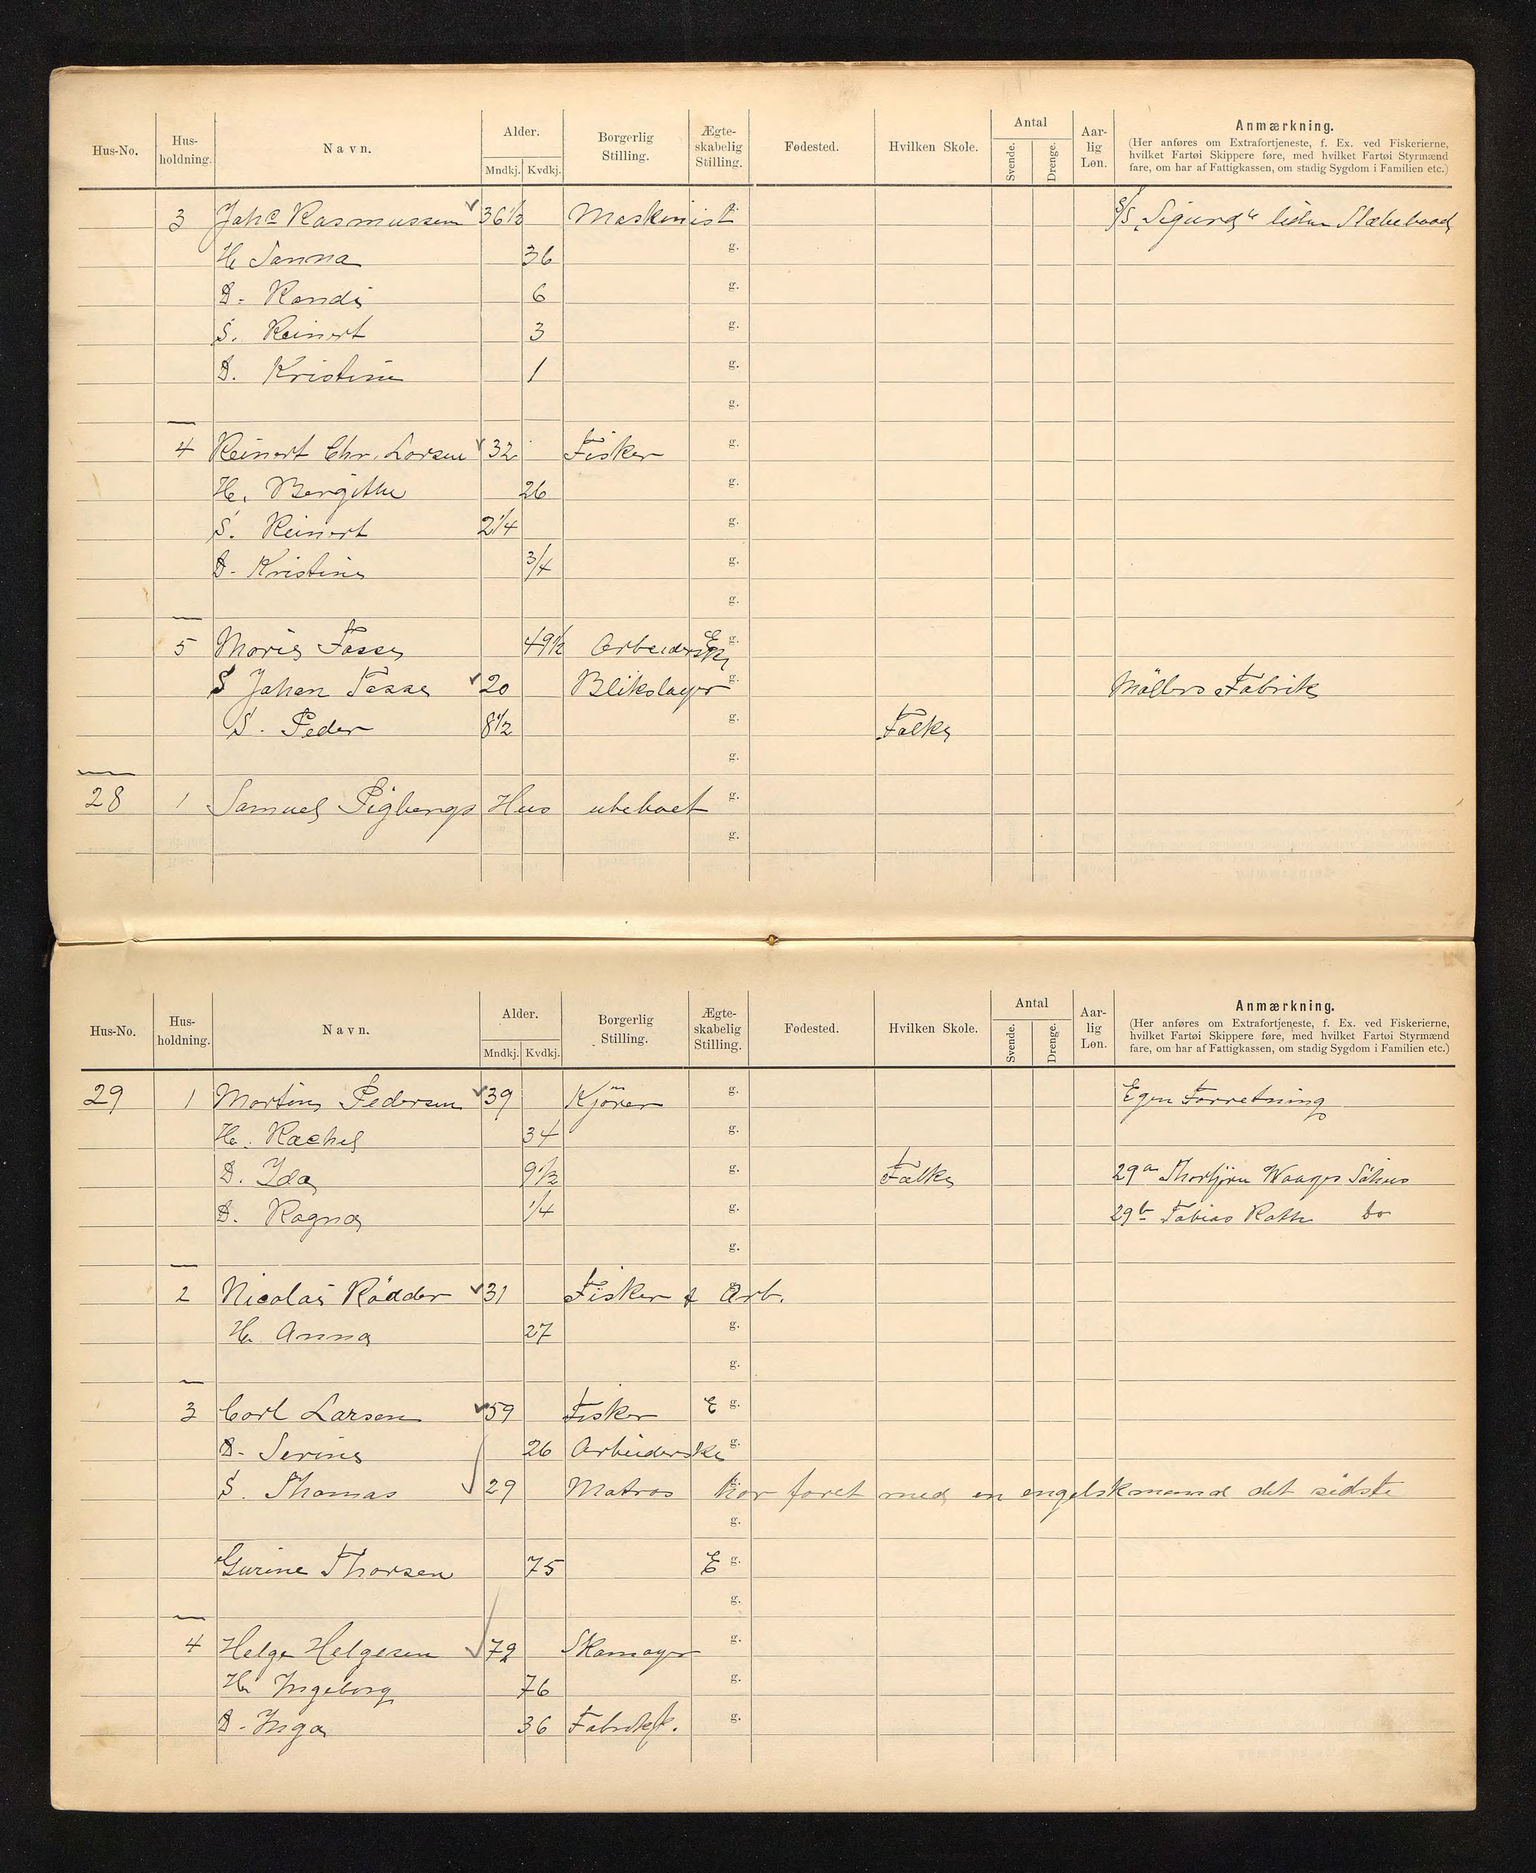 Hus-No. Hus-holdning. Navn. Alder. Mndkj. Kvdkj. Borgerlig Stilling. Ægte-skabelig Stilling. Fødested. Hvilken Skole. Antal Svende. Drenge. Aar-lig Løn. Anmærkning.
(Her anføres om Extrafortjeneste, f. Ex. ved Fiskerierne, hvilket Fartøi Skippere føre, med hvilket Fartøi Styrmænd fare, om har af Fattigkassen, om stadig Sygdom i Familien etc.)
3 Johs Rasmussen 36 1/2 Maskinist g. S/S "Sigurd" liden Slæbebaad
H. Sanna 36 g.
D. Randi 6 g.
S. Reinert 3 g.
D. Kristine 1 g.
g.
4 Reinert Chr. Larsen 32 Fisker g.
H. Bergithe 26 g.
S. Reinert 2 1/4 g.
D. Kristine 3/4 g.
g.
5 Marie Fasse 49 1/2 Arbeiderske E g.
S Johan Fasse 20 Blikslager g. Møllers Fabrik
S. Peder 8 1/2 g. Folks
g.
28 1 Samuel Pigbergs Hus ubeboet g.
g.
Hus-No. Hus-holdning. Navn. Alder. Mndkj. Kvdkj. Borgerlig Stilling. Ægte-skabelig Stilling. Fødested. Hvilken Skole. Antal Svende. Drenge. Aar-lig Løn. Anmærkning.
(Her anføres om Extrafortjeneste, f. Ex. ved Fiskerierne, hvilket Fartøi Skippere føre, med hvilket Fartøi Styrmænd fare, om har af Fattigkassen, om stadig Sygdom i Familien etc.)
29 1 Martin Pedersen 39 Kjører g. Egen Forretning
H. Rachel 34 g.
D. Ida 9 1/2 g. Folks 29a Thorbjørn Waages Søhus
D. Ragna 1/4 g. 29b Tobias Roth do
g.
2 Nicolai Rødder 31 Fisker & Arb.
H. Anna 27 g.
g.
3 Carl Larsen 59 Fisker E g.
D. Serine 26 Arbeiderske g.
S. Thomas 29 Matros har faret med en engelskmand det sidste
g.
Gurine Thorsen 75 E g.
g.
4 Helge Helgesen 72 Skomager g.
H. Ingeborg 76 g.
D. Inga 36 Fabrikk. g.